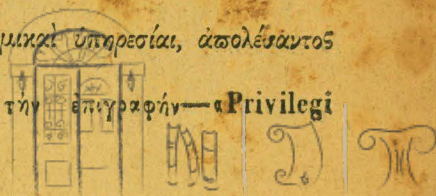 μικαὶ ὑπηρεσίαι, ἀπολέσαντος
τὴν ἐπιγραφήν—«Privilegi